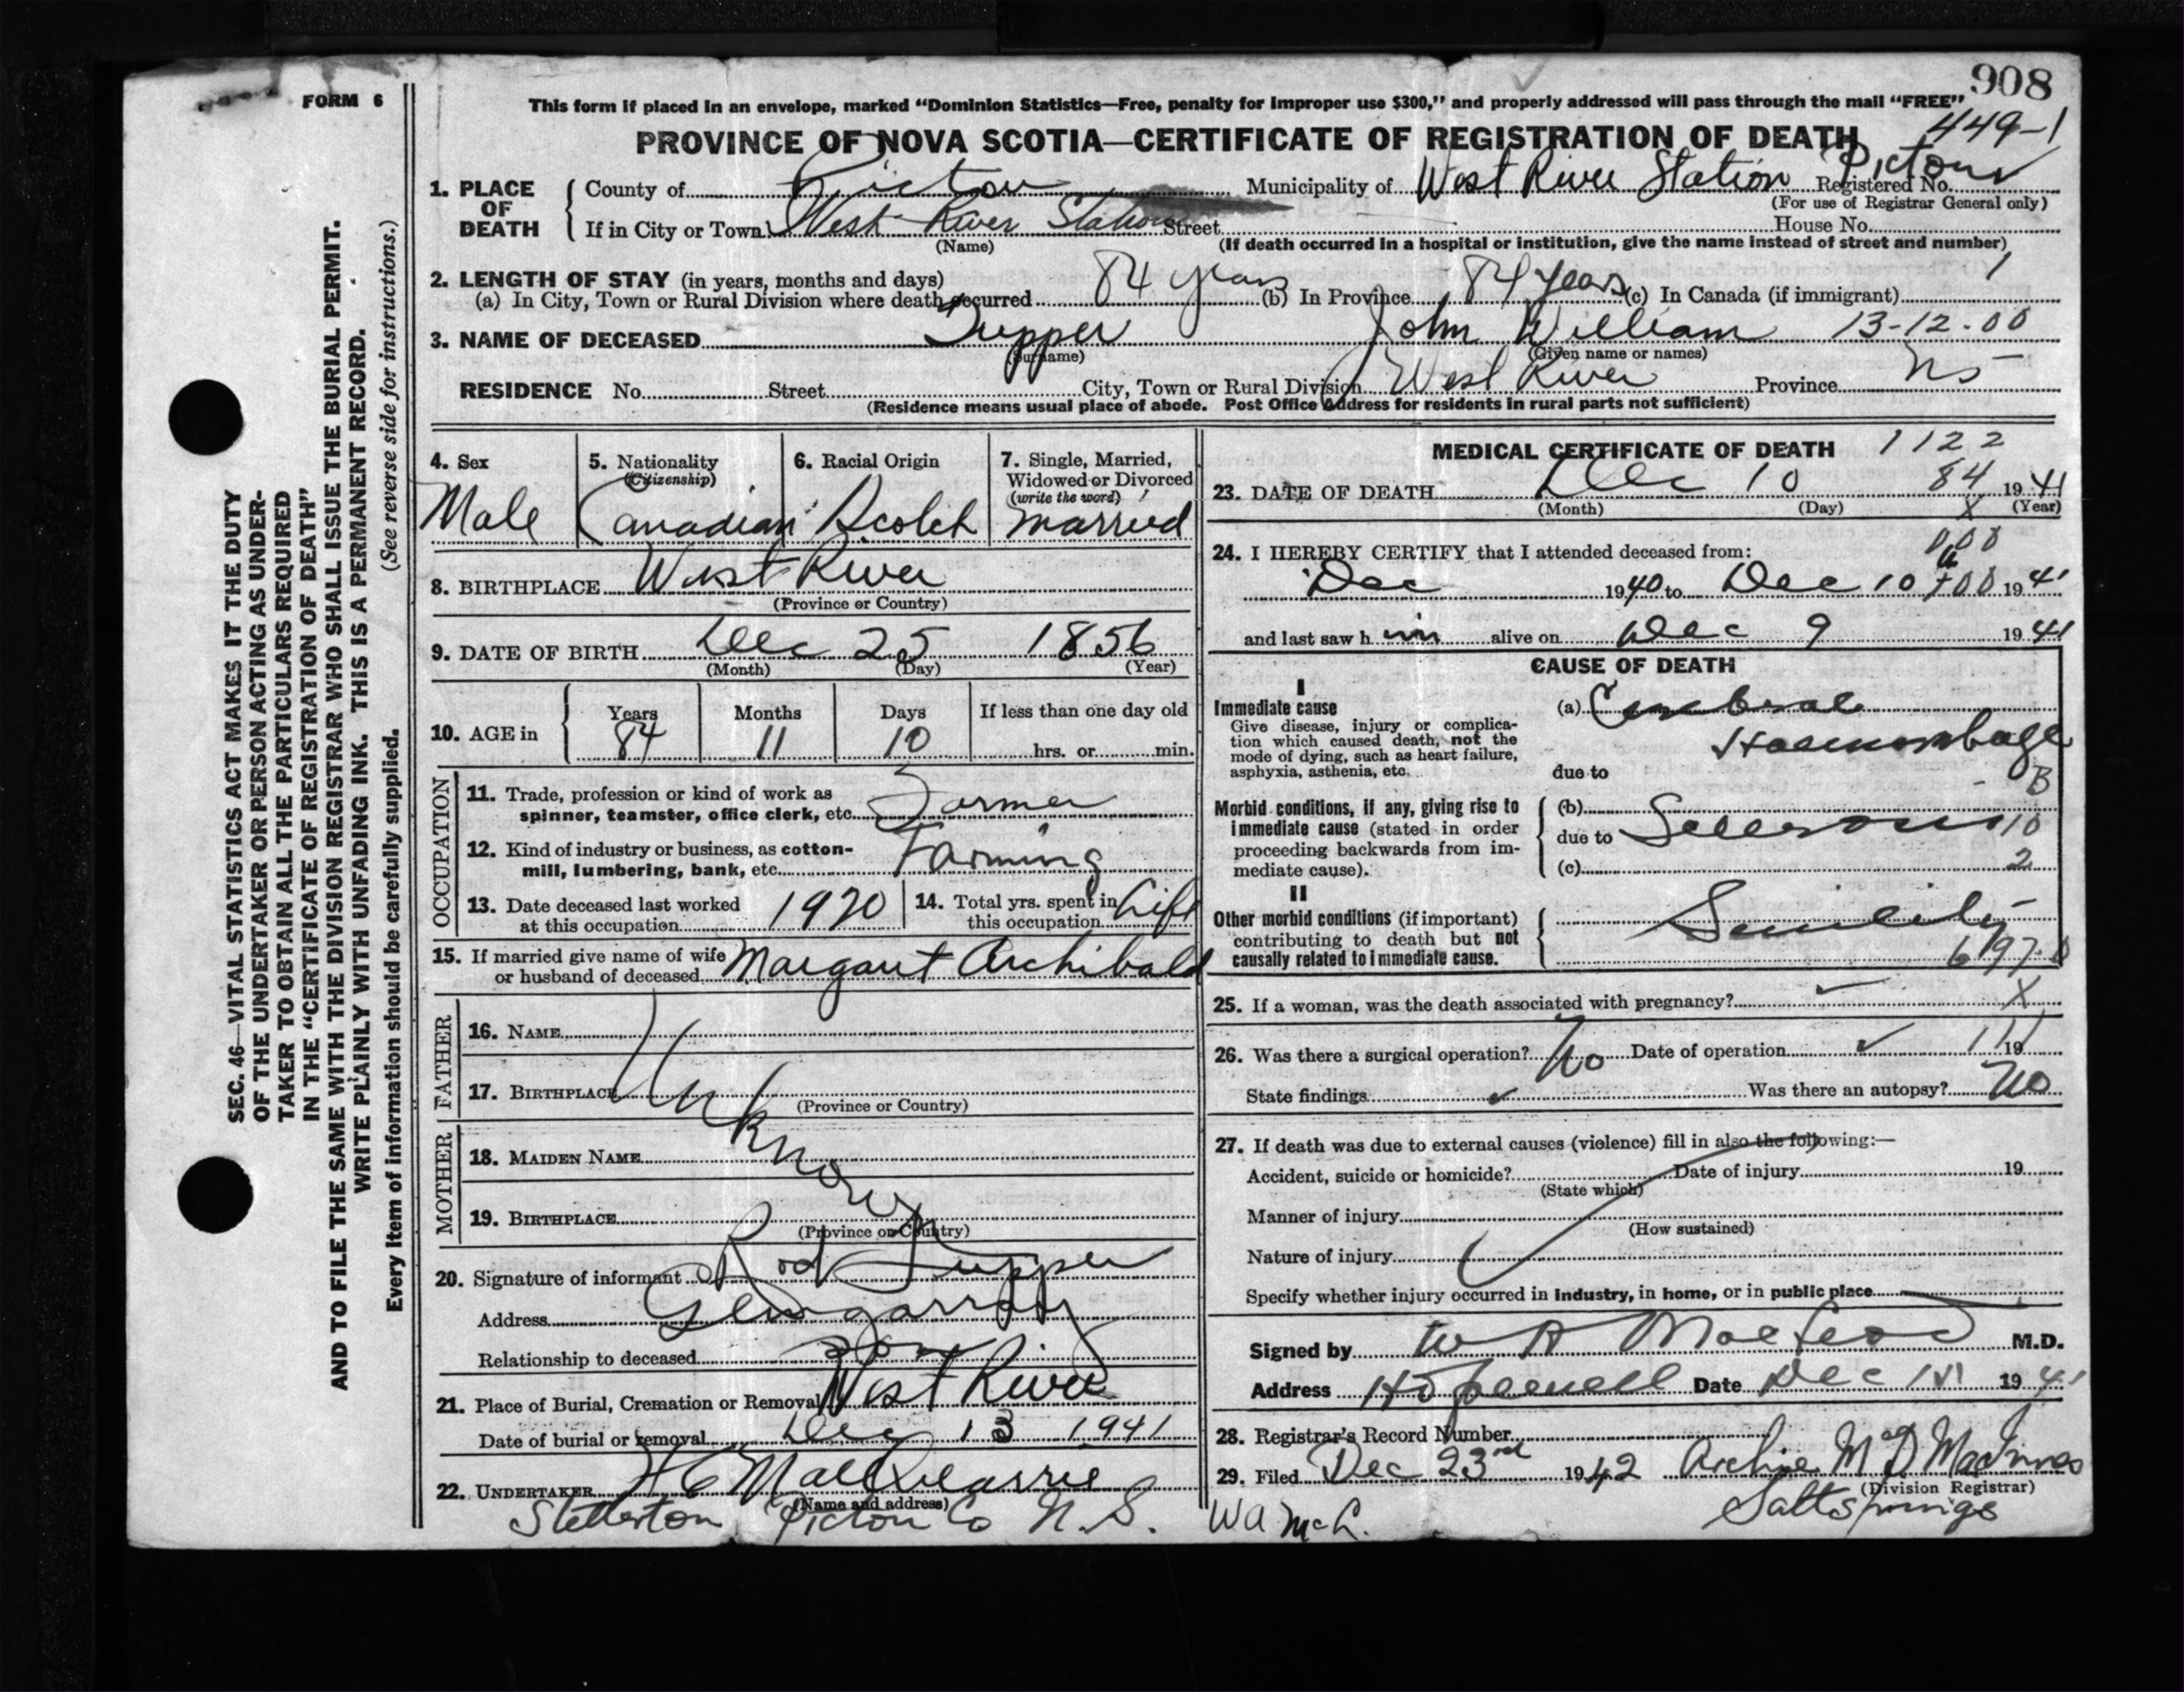 908
FORM 6
This form if placed in an envelope, marked “Dominion Statistics—Free, penalty for improper use $300,” and properly addressed will pass through the mail “FREE”
449-1
PROVINCE OF NOVA SCOTIA—CERTIFICATE OF REGISTRATION OF DEATH
Pictou
1. PLACE OF DEATH
County of Pictou Municipality of West River Station Registered No.
(For use of Registrar General only)
If in City or Town West River Station Street House No.
(Name) (If death occurred in a hospital or institution, give the name instead of street and number)
2. LENGTH OF STAY (in years, months and days) 1
(a) In City, Town or Rural Division where death occurred 84 years (b) In Province 84 years (c) In Canada (if immigrant)
3. NAME OF DECEASED Tupper John William 13-12-00
(Surname) (Given name or names)
RESIDENCE No. Street City, Town or Rural Division West River Province NS
(Residence means usual place of abode. Post Office Address for residents in rural parts not sufficient)
SEC. 46—VITAL STATISTICS ACT MAKES IT THE DUTY
OF THE UNDERTAKER OR PERSON ACTING AS UNDER-
TAKER TO OBTAIN ALL THE PARTICULARS REQUIRED
IN THE “CERTIFICATE OF REGISTRATION OF DEATH”
AND TO FILE THE SAME WITH THE DIVISION REGISTRAR WHO SHALL ISSUE THE BURIAL PERMIT.
WRITE PLAINLY WITH UNFADING INK. THIS IS A PERMANENT RECORD.
Every item of information should be carefully supplied. (See reverse side for instructions.)
4. Sex 5. Nationality (Citizenship) 6. Racial Origin 7. Single, Married, Widowed or Divorced (write the word)
Male Canadian Scotch Married
8. BIRTHPLACE West River
(Province or Country)
9. DATE OF BIRTH Dec 25 1856
(Month) (Day) (Year)
10. AGE in Years Months Days If less than one day old
84 11 10 hrs. or min.
OCCUPATION
11. Trade, profession or kind of work as
spinner, teamster, office clerk, etc. Farmer
12. Kind of industry or business, as cotton-
mill, lumbering, bank, etc. Farming
13. Date deceased last worked
at this occupation 1920
14. Total yrs. spent in
this occupation Life
15. If married give name of wife
or husband of deceased Margaret Archibald
FATHER
16. NAME
17. BIRTHPLACE
(Province or Country)
Unknown
MOTHER
18. MAIDEN NAME
19. BIRTHPLACE
(Province or Country)
20. Signature of informant Rod Tupper
Address
Relationship to deceased Son
21. Place of Burial, Cremation or Removal West River
Date of burial or removal Dec 13 1941
22. UNDERTAKER
(Name and address)
Stellerton Pictou Co N.S.
MEDICAL CERTIFICATE OF DEATH 1122
84
23. DATE OF DEATH Dec 10 1941
(Month) (Day) (Year)
X
24. I HEREBY CERTIFY that I attended deceased from:
Dec 1940 to Dec 10 1941
and last saw him alive on Dec 9 1941
CAUSE OF DEATH
I
Immediate cause
Give disease, injury or complica-
tion which caused death, not the
mode of dying, such as heart failure,
asphyxia, asthenia, etc.
(a) Cerebral
Haemorrhage
due to
B
Morbid conditions, if any, giving rise to
immediate cause (stated in order
proceeding backwards from im-
mediate cause).
(b)
due to Sclerosis 10
(c) 2
II
Other morbid conditions (if important)
contributing to death but not
causally related to immediate cause.
Senility
25. If a woman, was the death associated with pregnancy? X
26. Was there a surgical operation? No Date of operation 19
State findings Was there an autopsy? No
27. If death was due to external causes (violence) fill in also the following:—
Accident, suicide or homicide? Date of injury 19
(State which)
Manner of injury
(How sustained)
Nature of injury
Specify whether injury occurred in industry, in home, or in public place
Signed by W A MacLeod M.D.
Address Hopewell Date Dec 1941
28. Registrar's Record Number
29. Filed Dec 23rd 1942 Archie McD MacInnes
(Division Registrar)
Saltsprings